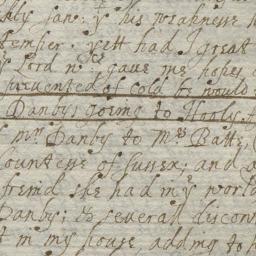 his weaknesse
tember. yett had I great
Lord wch gave me hopes
prevented of cold he would
Danby; goeing to Hooly.
mr. Danby to Mrs Batts,
Countess of Sussex; and
freind she had my
Danby; & severall discon
in my house, adding to